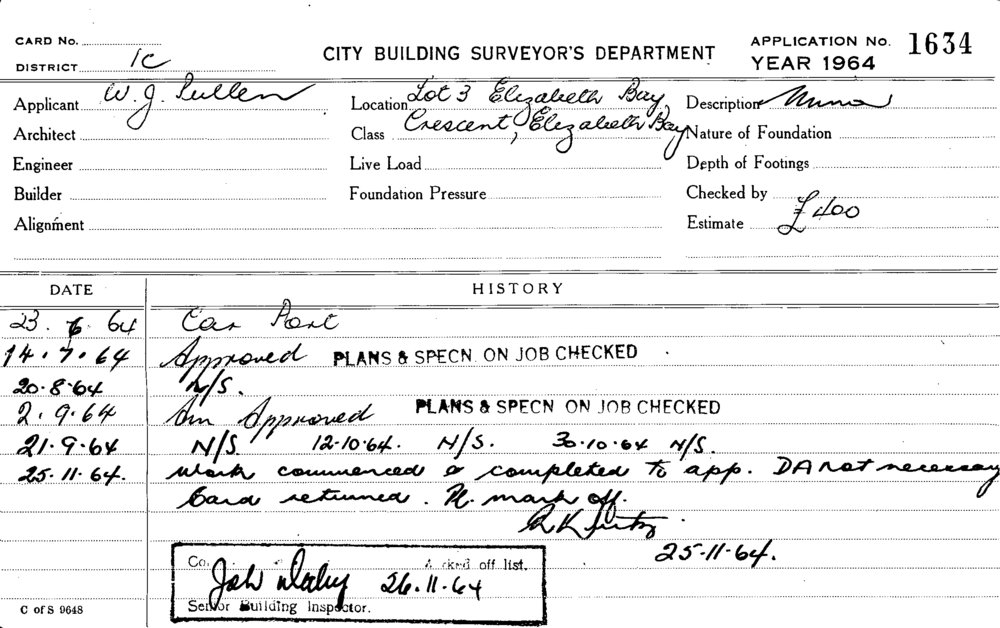 CARD No.
DISTRICT 1C
CITY BUILDING SURVEYOR'S DEPARTMENT
APPLICATION No. 1634
YEAR 1964
Applicant W. J. Pullen
Location Lot 3 Elizabeth Bay
Description Minor
Architect
Class Crescent, Elizabeth Bay
Nature of Foundation
Engineer
Live Load
Depth of Footings
Builder
Foundation Pressure
Checked by
Alignment
Estimate £400
DATE HISTORY
23. 6 64 Car Port
14.7.64 Approved PLANS & SPECN. ON JOB CHECKED
20.8.64 N/S.
2.9.64 Am Approved PLANS & SPECN ON JOB CHECKED
21.9.64 N/S. 12.10.64. N/S. 30.10.64 N/S.
25.11.64. Work commenced & completed to app. DA not necessary
Card returned. Pl. mark off.
25.11.64.
Co. ked off list.
26.11.64
Senior Building Inspector.
C of S 9648